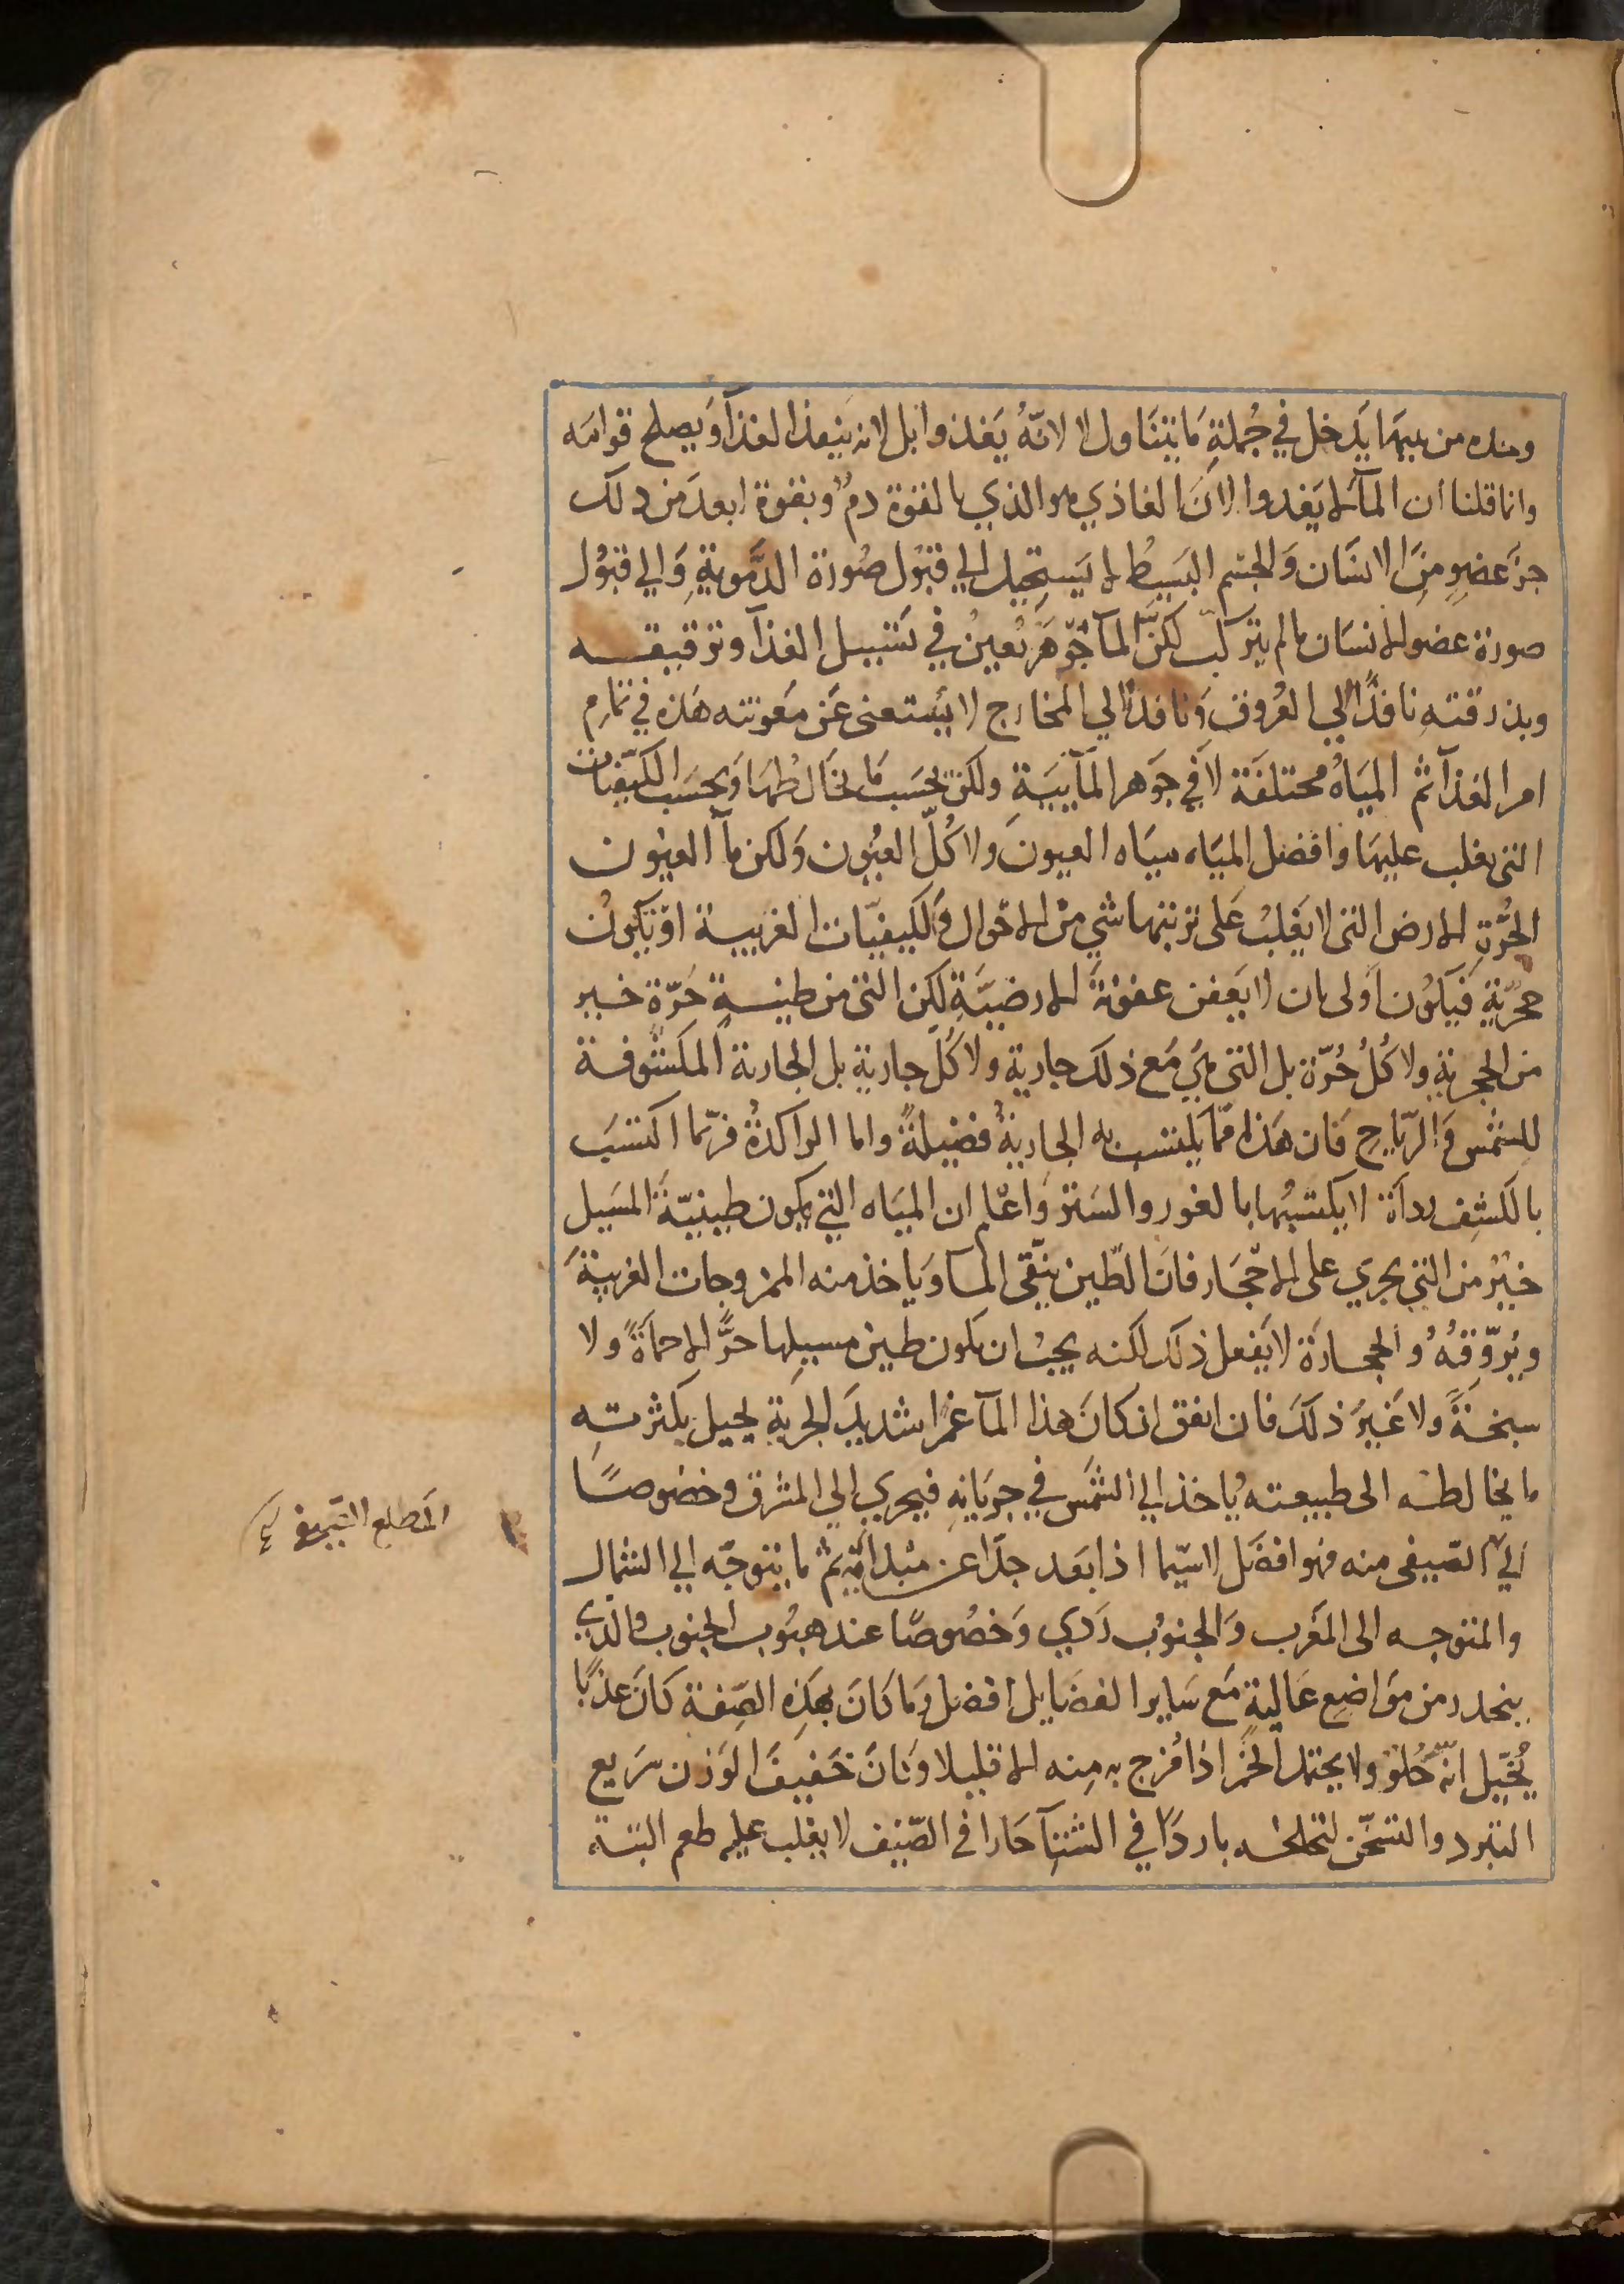 وحده من بينها يدخل في جُملةِ ما يتناول لا لانّهُ يَغذوا بل لانه ينفذ الغذآ وَيصلح قوامَه
وانما قلنا ان المآ لا يَغدوا لانَ الغاذي هو الذي بالقوة دمٌ وبقوة ابعدَ من ذلك
جزءَ عضوٍ مِنَ الانسَان وَالجسم البَسيطُ لا يَستحيل اليِ قبُول صُورة الدَّموية وَالي قبُول
صورة عضو الانسَان ما لم يتركّب لكنّ المآ جَوهَر يُعينُ في تسييل الغذآ وترقيقه
وبذرقته نافذًا الي العُروق وَنافذًا الي المخارج لا يُستغنى عَن مَعونته هَذه في تمام
امر الغذآ ثم الميَاهُ مختلفَة لا في جَوهر المآئيَةِ ولكن بحسَب مَا يخَالطُهَا وَبحسَب الكيفيات
التى يغلب عليهَا وافضل الميَاه ميَاه العيون وَلا كُلّ العيُون وَلكن مآ العيون
الحُرّةِ الارض التى لا يَغلبُ عَلى تربتها شي من الاحوال وَالكيفيّات الغريبة اوَ تكون
حجريّةٍ فيَكُون اَولى بان لا يَعفن عفونةَ الارضيَّةِ لكن التى من طينةٍ حَرّة خير
من الحجريةِ ولا كُلُ حُرّة بل التى هيَ مَع ذلك جاريةٍ ولا كُلّ جاريةٍ بل الجارية المكشوفة
للشمس وَالرّياح فَان هَذا ممّا يكتسب به الجاريةُ فضيلةً واما الراكدةُ فربّما اكتسَب
بالكشف رداَة لا يكتسبُها بالغور والستر وَاعلم ان الميَاه التي يكون طينيّةَ المسَيل
خيرٌ من التى يجري على الاحجَار فانَ الطّين ينّقى المآ وَياخذ منه الممزوجات الغريبَةَ
ويُروّقهُ وُالحجارة لا يَفعل ذلك لكنه يجبُ ان يكون طين مسيلِها حرًّ الا حماَةً ولا
سبخةً ولا غَيرَ ذلكَ فان اتفق ان كانَ هذا المآ غمرا شديدَ الجرية يحيل بكثرته
ما يخالطه الى طبيعته يُاخذ الي الشمَس في جريَانهِ فيجري الي المشرق وخصُوصًا
الي الصَيفى منه فهو افضَل لا سيّما اذا بَعد جدًّا عن مَبدائه ثم ما يتوجّه الي الشمال
والمتوجه الى المَغرب وَالجنوُب رَدي وَخصُوصًا عند هبُوب الجنوب والذي
ينحدر من موَاضع عَاليةٍ مَع سَاير الفضَايل افضل وَما كانَ بهَذِه الصّفة كانَ عذبًا
يُخيّل انّه حُلوٌ ولا يحتمل الخمر اذا مُزج به مِنه الا قليلا وَكانَ خَفيفَ الوَزن سَريع
التبرد والتسخّن لتخلخله باردًا في الشتآ حَارا فى الصّيف لا يغلب عليه طعم البتة
المَطلع الصَّيفى